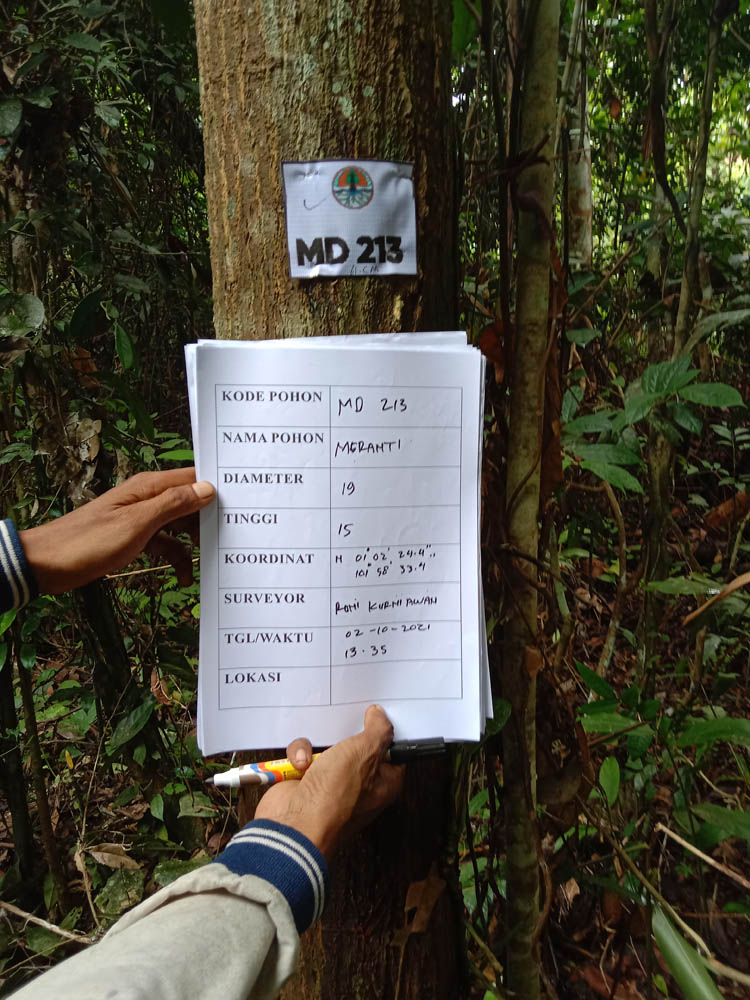 MD 213
61 CM
KODE POHON MD 213
NAMA POHON MERANTI
DIAMETER 19
TINGGI 15
KOORDINAT N 01° 02' 24.4"
101° 58' 33.4
SURVEYOR ROMI KURNIAWAN
TGL/WAKTU 02-10-2021
13.35
LOKASI